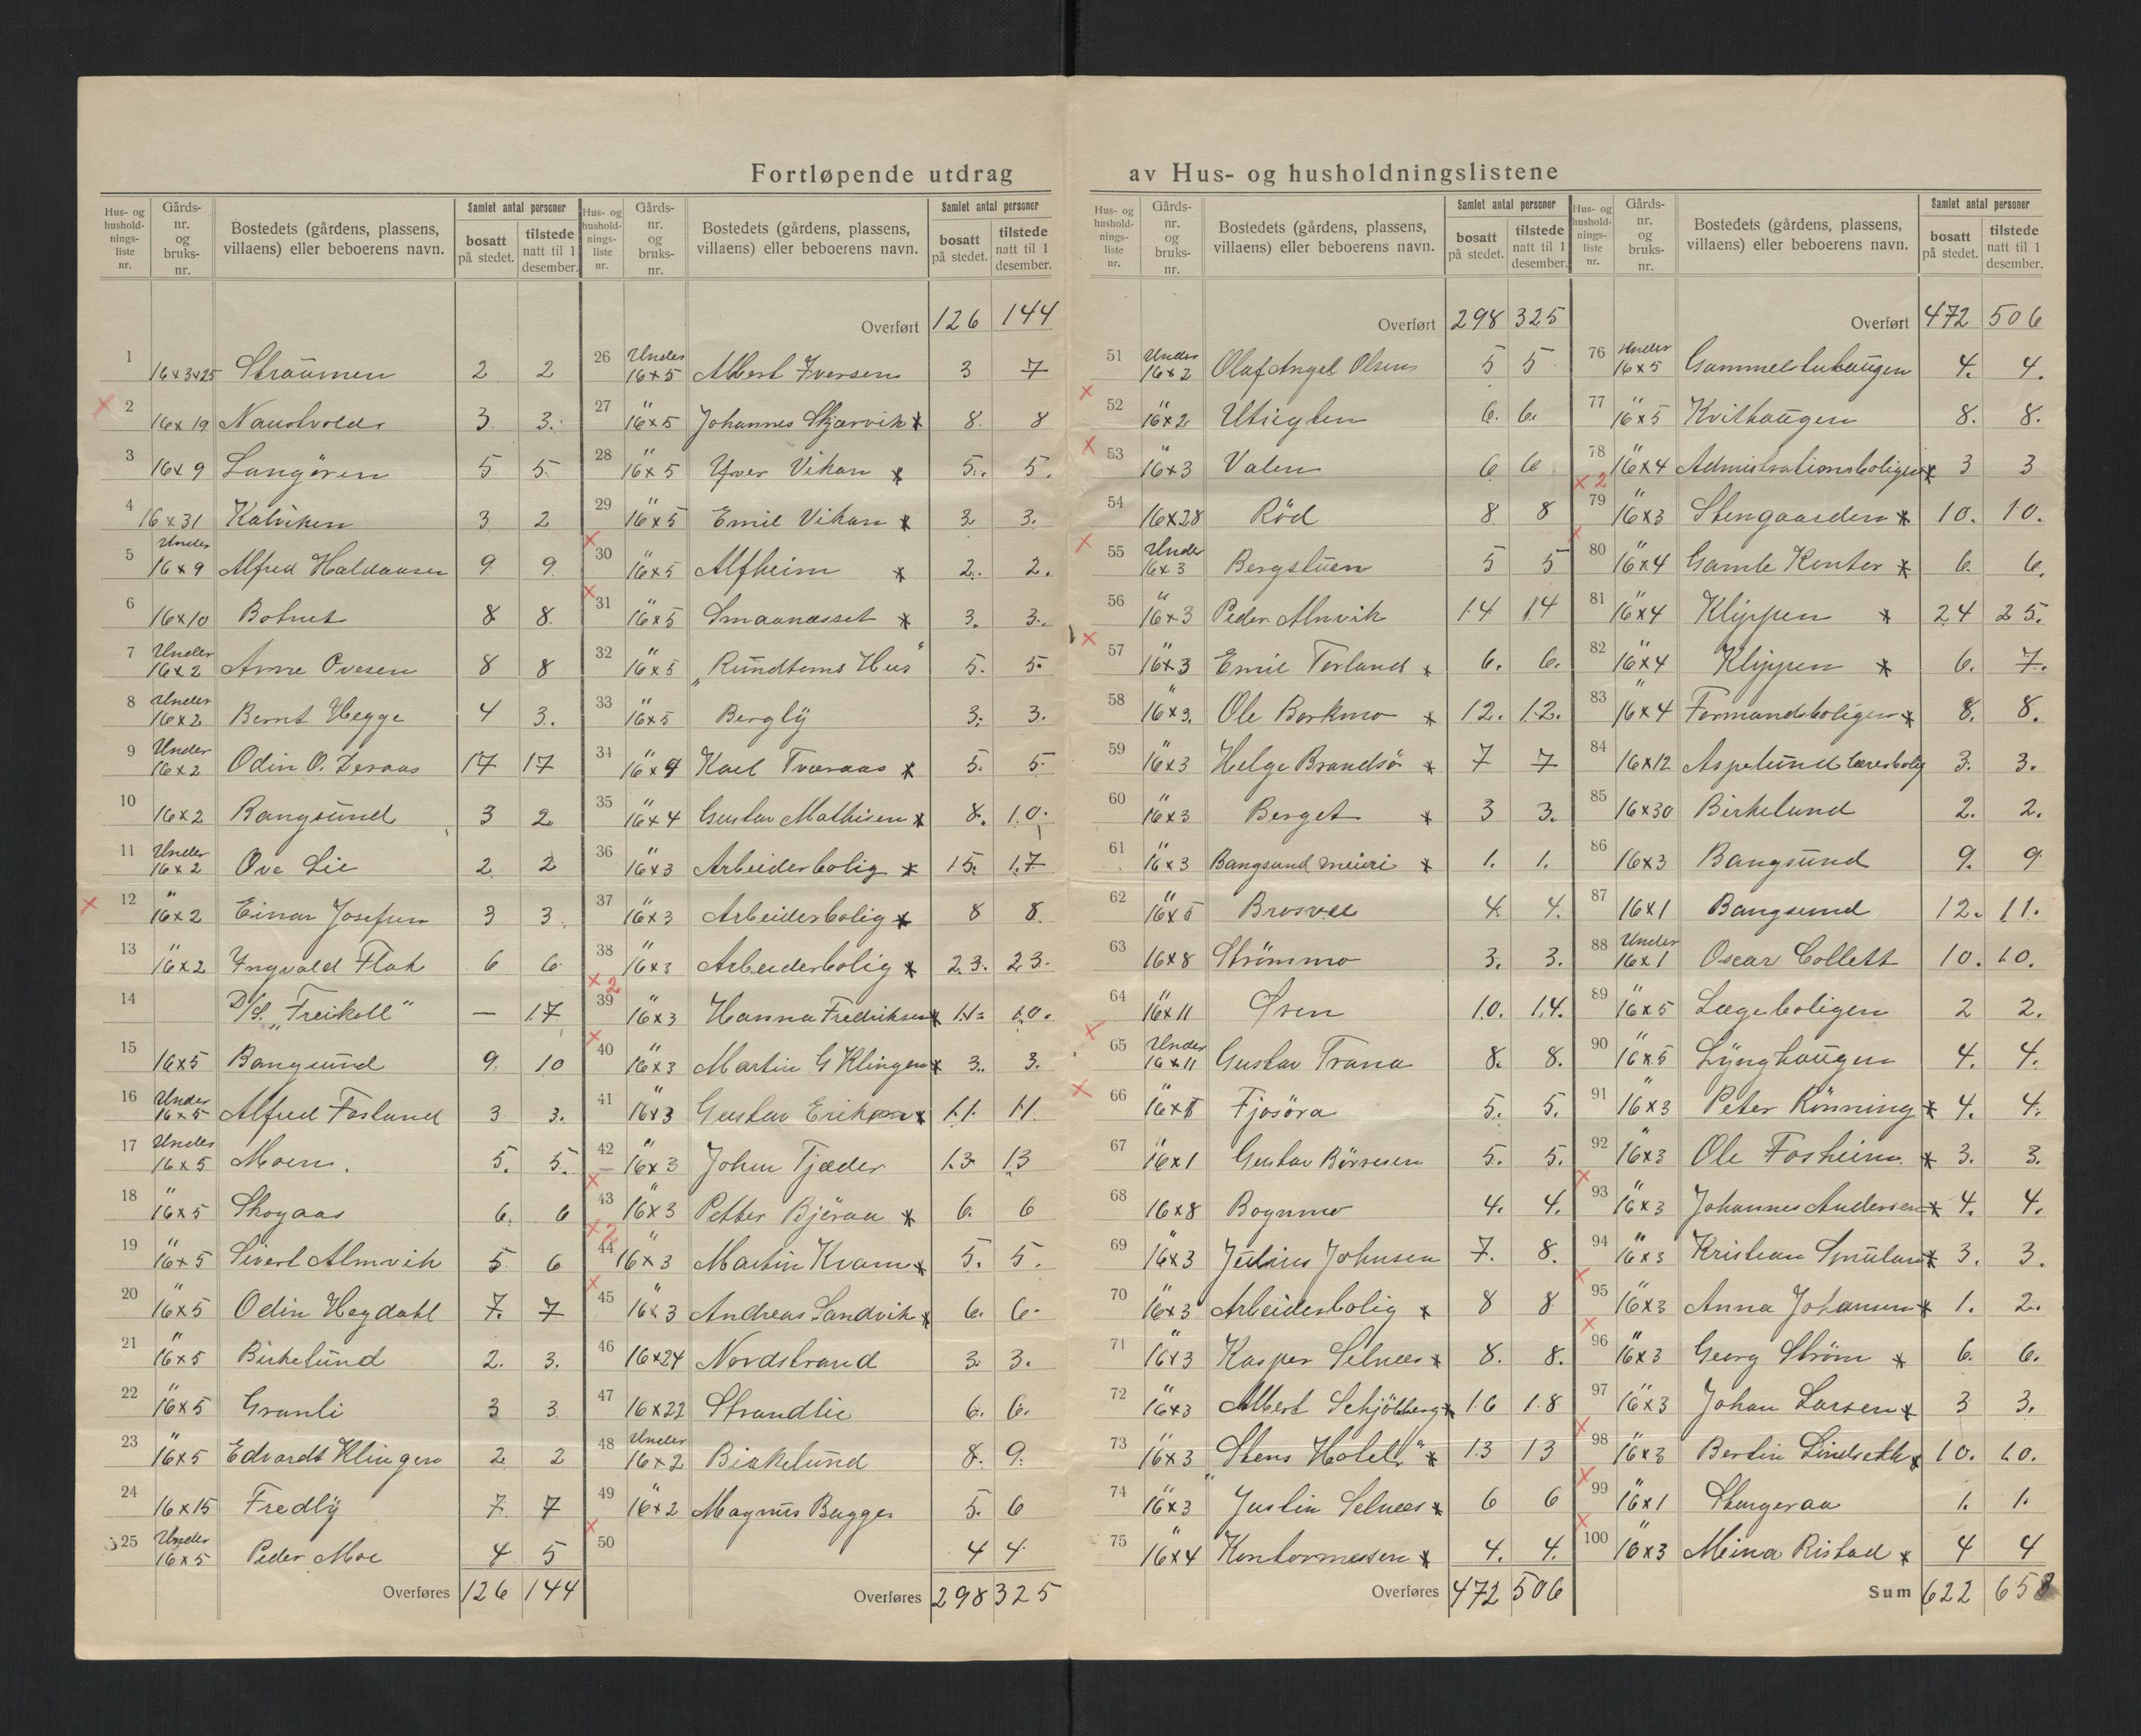 Fortløpende utdrag av Hus- og husholdningslistene
Hus- og hushold-nings-liste nr. | Gårds-nr. og bruks-nr. | Bostedets (gårdens, plassens, villaens) eller beboerens navn. | Samlet antal personer bosatt på stedet. | tilstede natt til 1 desember.
1 16x3x25 Straumen 2 2
2 16x19 Naustvold 3 3
3 16x9 Langören 5 5
4 16x31 Kalviken 3 2
5 Under 16x9 Alfred Haldaasen 9 9
6 16x10 Botnet 8 8
7 Under 16x2 Arne Ovesen 8 8
8 Under 16x2 Bernt Hegge 4 3
9 Under 16x2 Odin O. 17 17
10 16x2 Bangsund 3 2
11 Under 16x2 Ove Lie 2 2
12 " 16x2 Einar Josefsen 3 3
13 " 16x2 Yngvald Flak 6 6
14 D/S. „Freikoll" — 17
15 16x5 Bangsund 9 10
16 Under 16x5 Alfred Fosland 3 3
17 Under 16x5 Moen. 5 5
18 " 16x5 Skogaas 6 6
19 " 16x5 Sivert Almvik 5 6
20 " 16x5 Odin Hegdahl 7 7
21 " 16x5 Birkelund 2 3
22 " 16x5 Granli 3 3
23 " 16x5 Edvardt Klingen 2 2
24 16x15 Fredly 7 7
25 Under 16x5 Peder Moe 4 5
Overføres 126 144
Hus- og hushold-nings-liste nr. | Gårds-nr. og bruks-nr. | Bostedets (gårdens, plassens, villaens) eller beboerens navn. | Samlet antal personer bosatt på stedet. | tilstede natt til 1 desember.
Overført 126 144
26 Under 16x5 Albert Iversen 3 7
27 " 16x5 Johannes Skjærvik x 8 8
28 " 16x5 Yver Vikan x 5 5
29 " 16x5 Emil Vikan x 3 3
30 " 16x5 Alfheim x 2 2
31 " 16x5 Smaanesset x 3 3
32 " 16x5 „Rundtoms Hus" 5 5
33 " 16x5 Bergly 3 3
34 " 16x9 Karl Tværaas x 5 5
35 " 16x4 Gustav Mathisen x 8 10
36 " 16x3 Arbeiderbolig x 15 17
37 " 16x3 Arbeiderbolig x 8 8
38 " 16x3 Arbeiderbolig x 23 23
x 2
39 " 16x3 Hanna Fredriksen x 11 10
40 " 16x3 Martin G Klingen x 3 3
41 " 16x3 Gustav Eriksen x 11 11
42 " 16x3 Johan Tjæder 13 13
43 " 16x3 Petter Bjøraa x 6 6
x 2
44 " 16x3 Martin Kvam x 5 5
45 " 16x3 Andreas Sandvik x 6 6
46 16x24 Nordstrand 3 3
47 16x22 Strandlie 6 6
48 Under 16x2 Birkelund 8 9
49 " 16x2 Magnus Bugge 5 6
50 4 4
Overføres 298 325
Hus- og hushold-nings-liste nr. | Gårds-nr. og bruks-nr. | Bostedets (gårdens, plassens, villaens) eller beboerens navn. | Samlet antal personer bosatt på stedet. | tilstede natt til 1 desember.
Overført 298 325
51 Under 16x2 Olaf Angel Olsen 5 5
52 " 16x2 Utsiglen 6 6
53 " 16x3 Valen 6 6
54 16x28 Röd 8 8
55 Under 16x3 Bergstuen 5 5
56 " 16x3 Peder Almvik 14 14
57 " 16x3 Emil Torland x 6 6
58 " 16x3 Ole Barkmo x 12 12
59 " 16x3 Helge Brandsö x 7 7
60 " 16x3 Berget x 3 3
61 " 16x3 Bangsund meieri x 1 1
62 " 16x5 Bresvee 4 4
63 16x8 Strömmo 3 3
64 " 16x11 Øren 10 14
65 Under 16x11 Gustav Trana 8 8
66 " 16x8 Fjosöra 5 5
67 " 16x1 Gustav Börresen 5 5
68 16x8 Bognmo 4 4
69 " 16x3 Julius Johnsen 7 8
70 " 16x3 Arbeiderbolig x 8 8
71 " 16x3 Kasper Selnæs x 8 8
72 " 16x3 Albert Schjölberg x 16 18
73 " 16x3 „Stens Hotell" x 13 13
74 " 16x3 Justin Selnæs x 6 6
75 " 16x4 Kontormessen x 4 4
Overføres 472 506
Hus- og hushold-nings-liste nr. | Gårds-nr. og bruks-nr. | Bostedets (gårdens, plassens, villaens) eller beboerens navn. | Samlet antal personer bosatt på stedet. | tilstede natt til 1 desember.
Overført 472 506
76 Under 16x5 Gammelstuhaugen 4 4
77 " 16x5 Kvithaugen 8 8
78 " 16x4 Admistrationsboligen x 3 3
x 2
79 " 16x3 Stengaarden x 10 10
80 " 16x4 Gamle Kontor x 6 6
81 " 16x4 Klippen x 24 25
82 " 16x4 Klippen x 6 7
83 " 16x4 Formandsboligen x 8 8
84 16x12 Aspelund lærerbolig 3 3
85 16x30 Birkelund 2 2
86 16x3 Bangsund 9 9
87 16x1 Bangsund 12 11
88 Under 16x1 Oscar Collett 10 10
89 " 16x5 Lægeboligen 2 2
90 " 16x5 Lynghaugen 4 4
91 " 16x3 Peter Rönning x 4 4
92 " 16x3 Ole Fosheim x 3 3
93 " 16x3 Johannes Andersen x 4 4
94 " 16x3 Kristian Smulan x 3 3
95 " 16x3 Anna Johansen x 1 2
96 " 16x3 Georg Strøm x 6 6
97 " 16x3 Johan Larsen x 3 3
98 " 16x3 Bertin Lindseth x 10 10
99 " 16x1 Stengeraa 1 1
100 " 16x3 Meina Ristad x 4 4
Sum 622 658